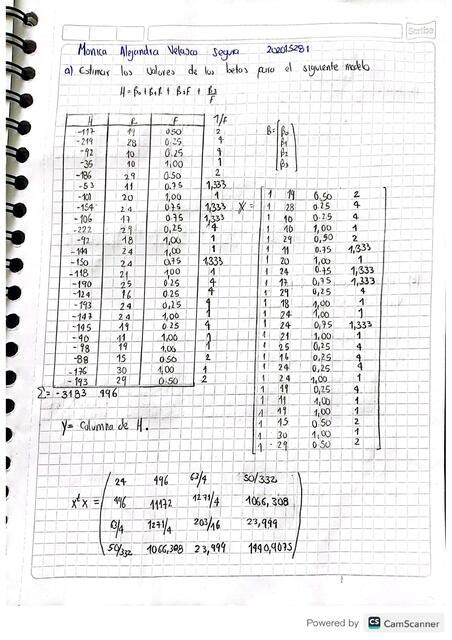 Scribe
Monica Alejandra Velasco Segura 202015281
a) Estimar los valores de los betas para el siguiente modelo
H = β₀ + β₁R + β₂F + β₃/F
H R F 1/F
-117 19 0.50 2
-219 28 0,25 4
-92 10 0.25 4
-35 10 1,00 1
-186 29 0.50 2
-53 11 0.75 1,333
-101 20 1,00 1
-154 24 0.75 1,333
-106 17 0.75 1,333
-222 29 0,25 4
-92 18 1,00 1
-144 24 1,00 1
-150 24 0.75 1,333
-118 21 1,00 1
-190 25 0.25 4
-124 16 0.25 4
-193 24 0,25 4
-147 24 1,00 1
-145 19 0.25 4
-90 11 1,00 1
-98 19 1,00 1
-88 15 0.50 2
-176 30 1,00 1
-193 29 0.50 2
Σ= -3183 496
B= β₀ β₁ β₂ β₃
X =
1 19 0,50 2
1 28 0.25 4
1 10 0.25 4
1 10 1,00 1
1 29 0,50 2
1 11 0.75 1,333
1 20 1.00 1
1 24 0.75 1,333
1 17 0,75 1,333
1 29 0,25 4
1 18 1,00 1
1 24 1,00 1
1 24 0,75 1,333
1 21 1,00 1
1 25 0,25 4
1 16 0,25 4
1 24 0.25 4
1 24 1,00 1
1 19 0,25 4
1 11 1,00 1
1 19 1,00 1
1 15 0.50 2
1 30 1,00 1
1 29 0.50 2
Y= Columna de H.
XᵗX =
24 496 63/4 50/332
496 11172 1271/4 1066,308
63/4 1271/4 203/16 23,999
50/332 1066,308 23,999 1440,4075
Powered by CS CamScanner